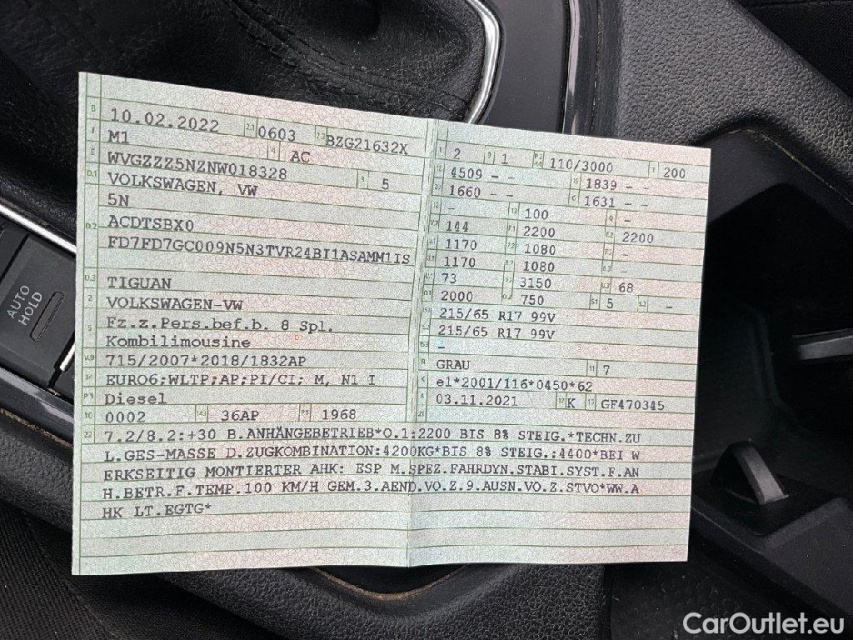 10.02.2022 0603 BZG21632X
M1 AC
WVGZZZ5NZNW018328 5
VOLKSWAGEN, VW
5N
ACDTSBX0
FD7FD7GC009N5N3TVR24BI1ASAMM1IS
TIGUAN
VOLKSWAGEN-VW
Fz.z.Pers.bef.b. 8 Spl.
Kombilimousine
715/2007*2018/1832AP
EURO6;WLTP;AP;PI/CI; M, N1 I
Diesel
0002 36AP 1968
2 1 110/3000 200
4509 - - 1839 - -
1660 - - 1631 - -
- 100 -
144 2200 2200
1170 1080 -
1170 1080 -
73 3150 68
2000 750 5 -
215/65 R17 99V
215/65 R17 99V
-
GRAU 7
e1*2001/116*0450*62
03.11.2021 K GF470345
7.2/8.2:+30 B.ANHÄNGEBETRIEB*O.1:2200 BIS 8% STEIG.*TECHN.ZU
L.GES-MASSE D.ZUGKOMBINATION:4200KG*BIS 8% STEIG.:4400*BEI W
ERKSEITIG MONTIERTER AHK: ESP M.SPEZ.FAHRDYN.STABI.SYST.F.AN
H.BETR.F.TEMP.100 KM/H GEM.3.AEND.VO.Z.9.AUSN.VO.Z.STVO*WW.A
HK LT.EGTG*
AUTO
HOLD
CarOutlet.eu